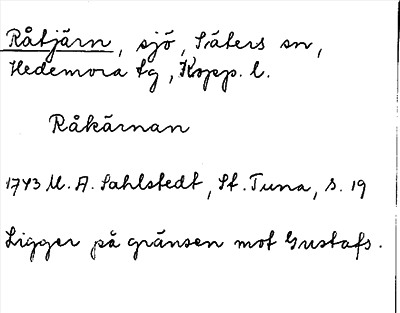 Råtjärn, sjö, Säters sn,
Hedemora tg, Kopp. l.
Råkärnan
1743 M. A. Sahlstedt, St. Tuna, s. 19
Ligger på gränsen mot Gustafs.